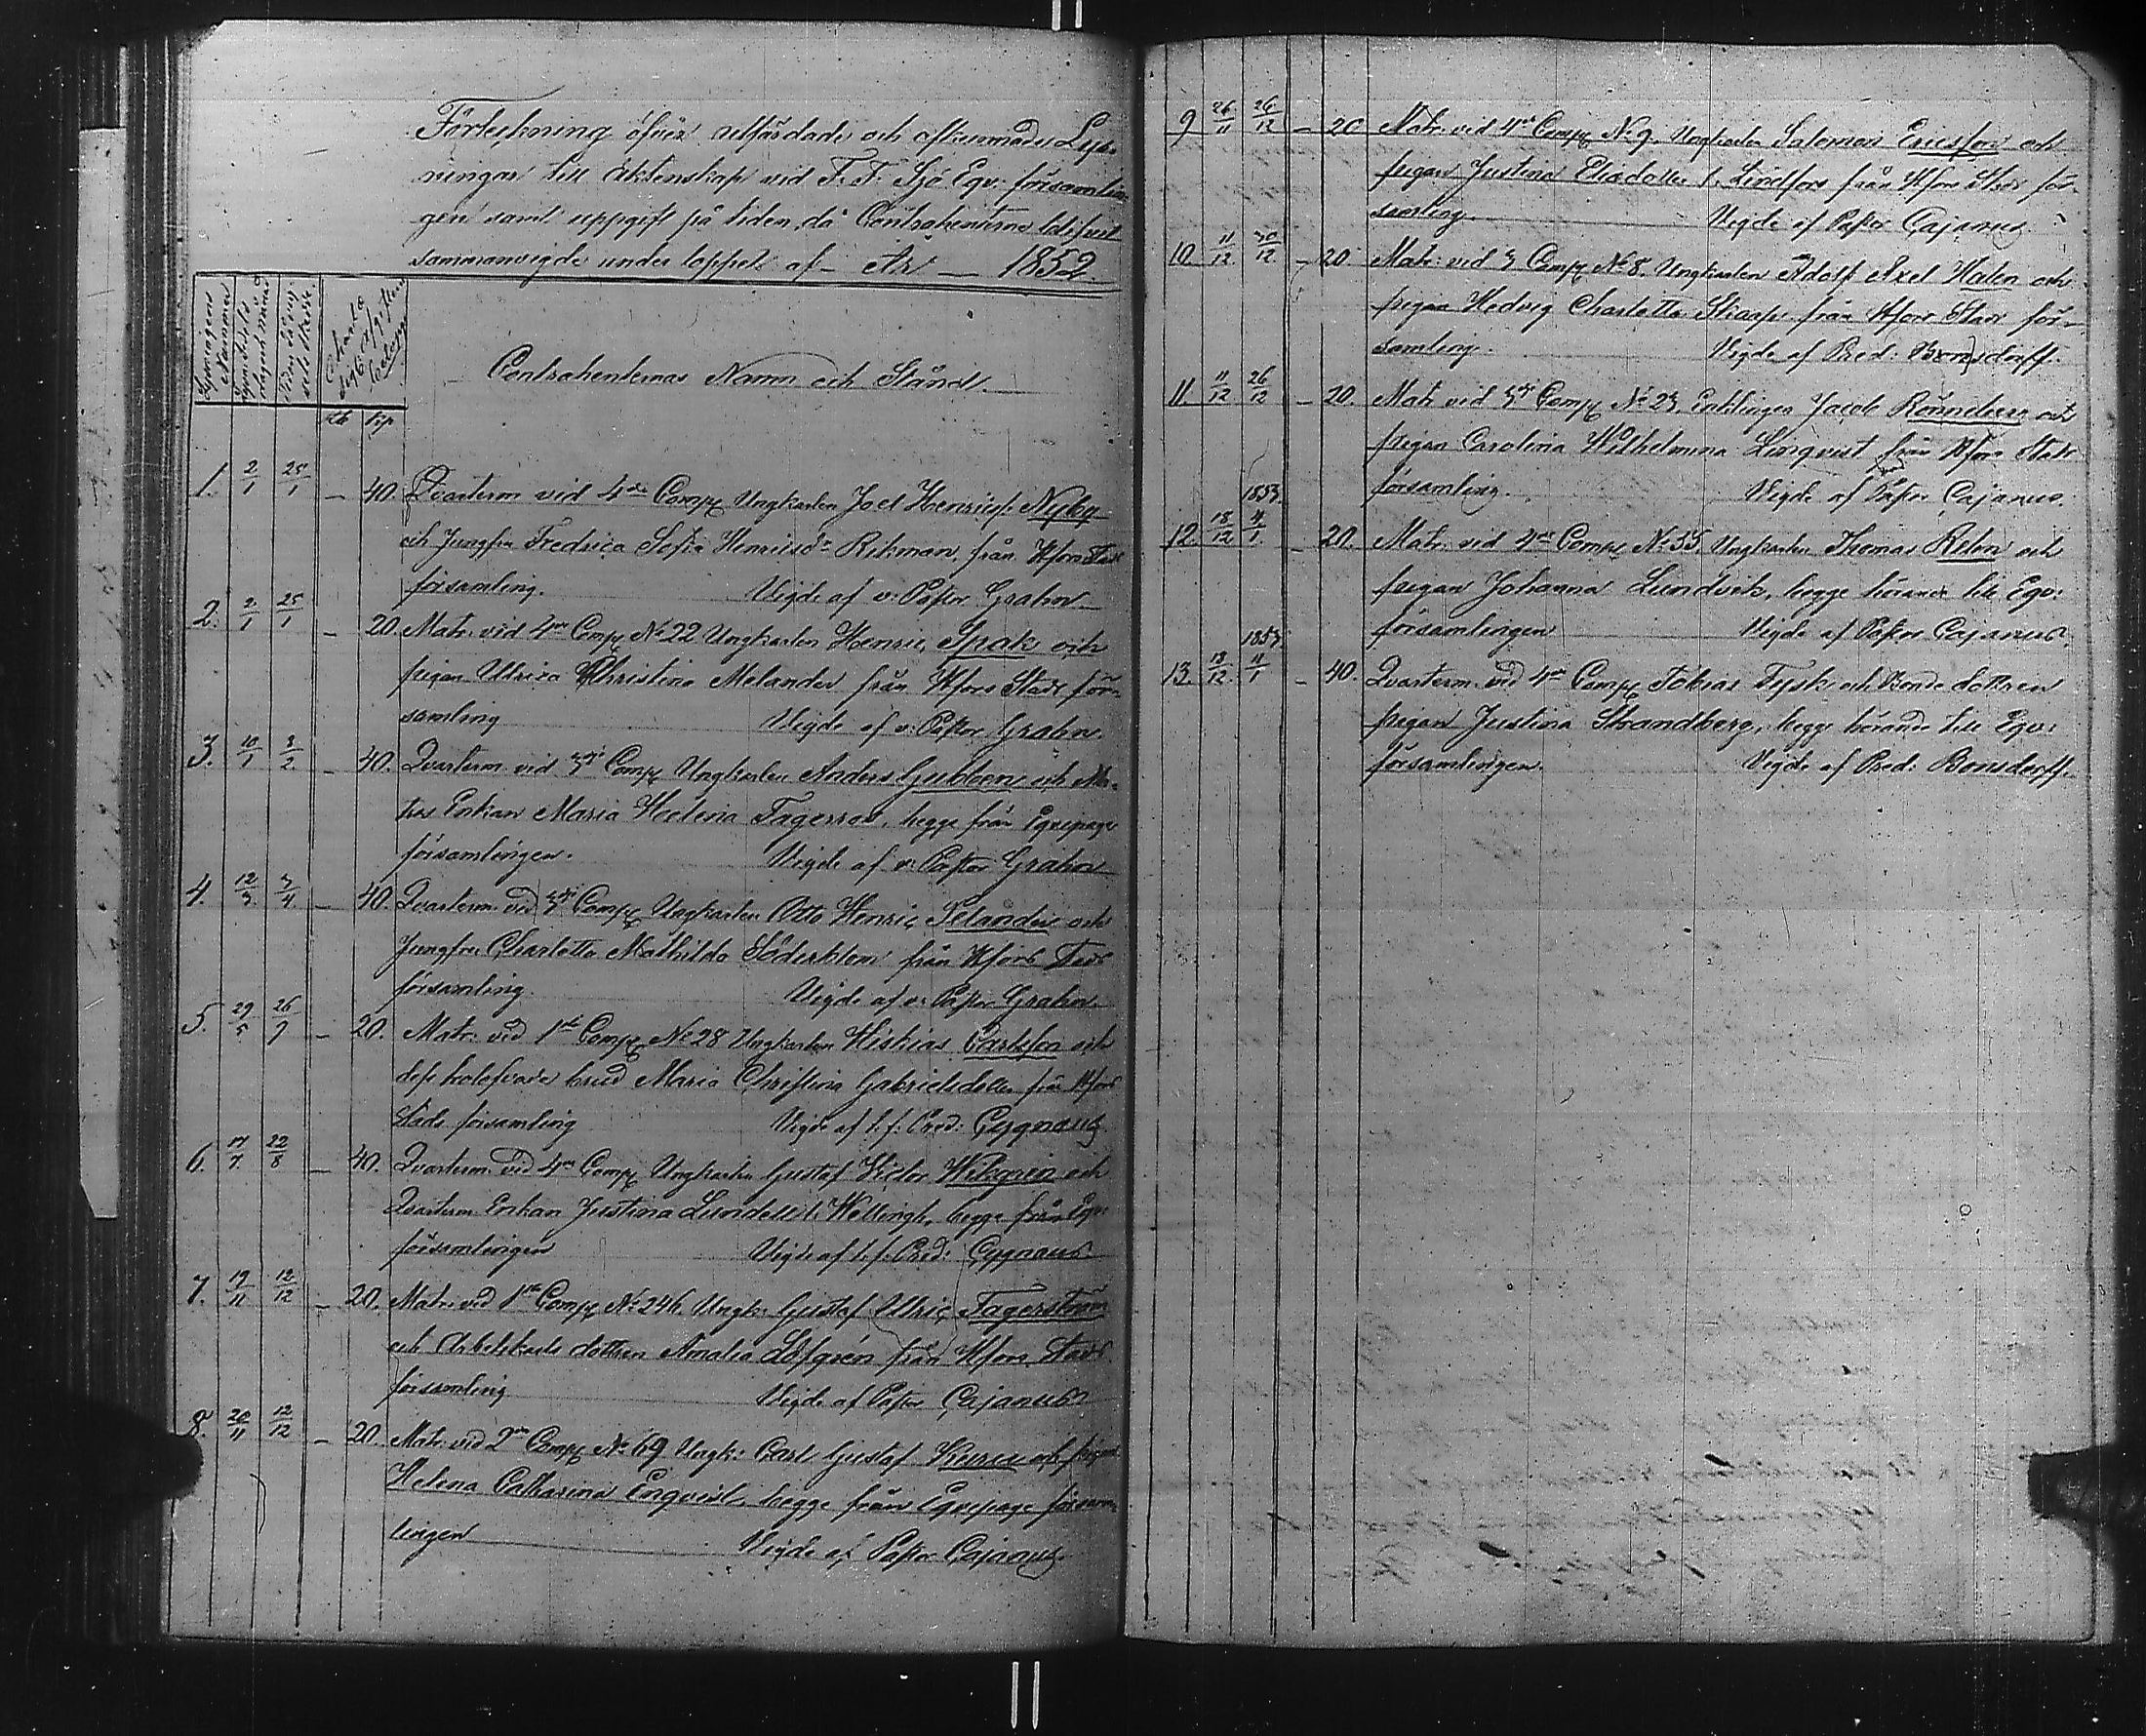 Förteckning öfver utfärdade och afkunnade Lys-
ningar till äktenskap vid F. F. Sjö Eqv: församlin-
gen samt uppgift på tiden, då Contrahenterne blifvit
sammanvigde under loppet af År 1852.
Lysningens Nummer
Tiden då vig-
Charta
Contrahenternas Namn och Stånd.
Rb kop
1. 2/1 25/1 – 40. Qvarterm vid 4de Comp Ungkarlen Joel Henricss. Nyby
och Jungfru Fredrica Sofia Henricsdr Rikman, från Hfors Stads
församling. Vigde af v: Pastor Grahn
2. 2/1 25/1 – 20. Matr. vid 4de Comp No 22 Ungkarlen Henric Spak och
pigan Ulrica Christina Melander från Hfors Stads för-
samling Vigde af v: Pastor Grahn.
3. 10/1 3/2 – 40. Qvarterm vid 3dje Comp Ungkarlen Anders Gubben och Ma-
tros Enkan Maria Helena Fagerroos, begge från Equipage
församlingen. Vigde af v: Pastor Grahn
4. 12/3 3/4 – 40. Qvarterm vid 3dje Comp Ungkarlen Otto Henric Selander och
Jungfru Charlotta Mathilda Söderblom från Hfors Stads
församling. Vigde af v: Pastor Grahn
5. 29/5 26/9 – 20. Matr: vid 1sta Comp No 28 Ungkarlen Hiskias Carlsson och
dess trolofvade brud Maria Christina Gabrielsdotter från Hfors
Stads församling Vigde af t. f. Pred: Cygnæus
6. 17/7 22/8 – 40. Qvarterm vid 4de Comp Ungkarlen Gustaf Victor Wikgren och
Qvarterm Enkan Justina Lundell f. Wellingk, begge från Eqv:
församlingen Vigde af t. f. Pred: Cygnæus
7. 19/11 12/12 – 20. Matr. vid 1sta Comp No 246. Ungk: Gustaf Ulric Fagerström
och Arbetskarls dottren Amalia Löfgrén från Hfors Stads
församling Vigde af Pastor Cajanus
8. 20/11 12/12 – 20. Matr: vid 2dra Comp No 69 Ungk: Carl Gustaf och pigan
Helena Catharina Enqvist, begge från Equipage försam-
lingen Vigde af Pastor Cajanus
9 26/11 26/12 – 20 Matr. vid 4de Comp No 9. Ungkarlen Salomon Ericsson och
pigan Justina Eliædotter f. Lindfors från Hfors Stads för-
samling. Vigde af Pastor Cajanus.
10. 11/12 30/12 – 20 Matr: vid 3 Comp No 8. Ungkarlen Adolf Axel Halen och
pigan Hedvig Charlotta Skarp från Hfors Stads för-
samling. Vigde af Pred: Bonsdorff.
11. 11/12 26/12 – 20. Matr vid 3dje Comp No 23 Enklingen Jacob Rönnberg och
pigan Carolina Wilhelmina Linqvist från Hfors Stads
församling. Vigde af Pastor Cajanus.
1853
12. 18/12 4/1 – 20. Matr. vid 4de Comp No 55. Ungkarlen Thomas Relon och
pigan Johanna Lundvik, begge hörande till Eqv:
församlingen Vigde af Pastor Cajanus.
1853
13. 18/12 11/1 – 40. Qvarterm vid 4de Comp Tobias Tysk och Bonde dottren
pigan Justina Strandberg, begge hörande till Eqv:
församlingen. Vigde af Pred: Bonsdorff.